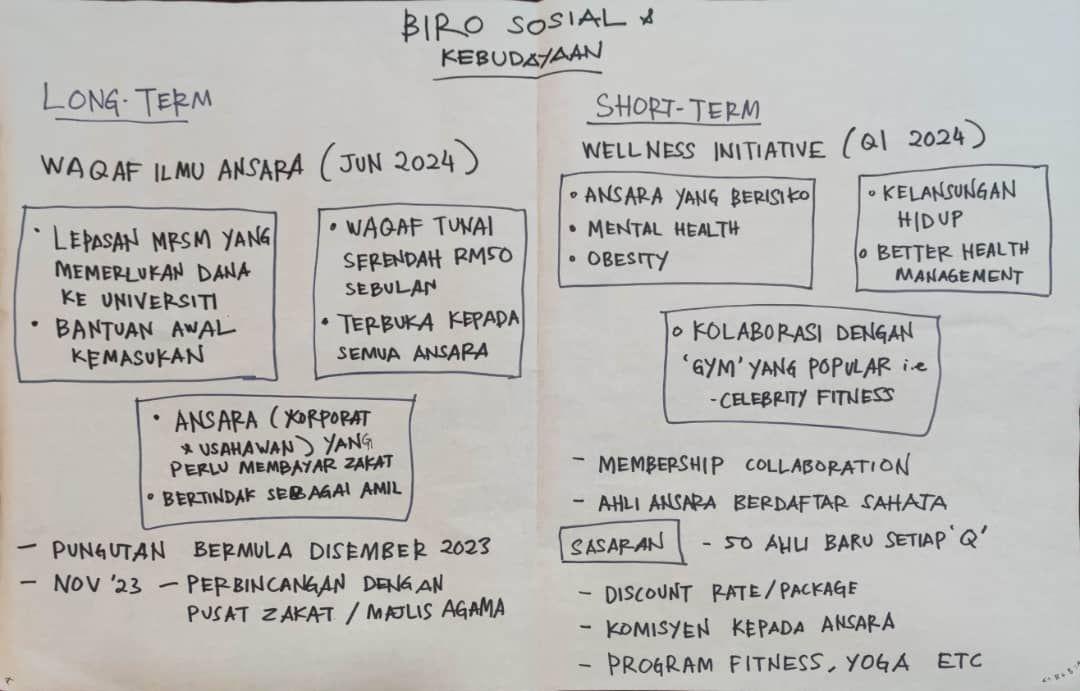 BIRO SOSIAL &
KEBUDAYAAN
LONG-TERM
WAQAF ILMU ANSARA (JUN 2024)
• LEPASAN MRSM YANG
MEMERLUKAN DANA
KE UNIVERSITI
• BANTUAN AWAL
KEMASUKAN
• WAQAF TUNAI
SERENDAH RM50
SEBULAN
• TERBUKA KEPADA
SEMUA ANSARA
• ANSARA (KORPORAT
& USAHAWAN) YANG
PERLU MEMBAYAR ZAKAT
• BERTINDAK SEBAGAI AMIL
- PUNGUTAN BERMULA DISEMBER 2023
- NOV '23 - PERBINCANGAN DENGAN
PUSAT ZAKAT / MAJLIS AGAMA
SHORT-TERM
WELLNESS INITIATIVE (Q1 2024)
• ANSARA YANG BERISIKO
• MENTAL HEALTH
• OBESITY
• KELANSUNGAN
HIDUP
• BETTER HEALTH
MANAGEMENT
• KOLABORASI DENGAN
'GYM' YANG POPULAR i.e
- CELEBRITY FITNESS
- MEMBERSHIP COLLABORATION
- AHLI ANSARA BERDAFTAR SAHAJA
SASARAN - 50 AHLI BARU SETIAP 'Q'
- DISCOUNT RATE/PACKAGE
- KOMISYEN KEPADA ANSARA
- PROGRAM FITNESS, YOGA ETC